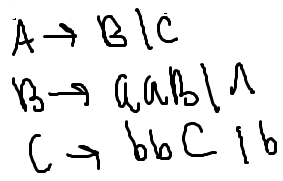 A → B | C
B → aaB | Λ
C → bbC | b